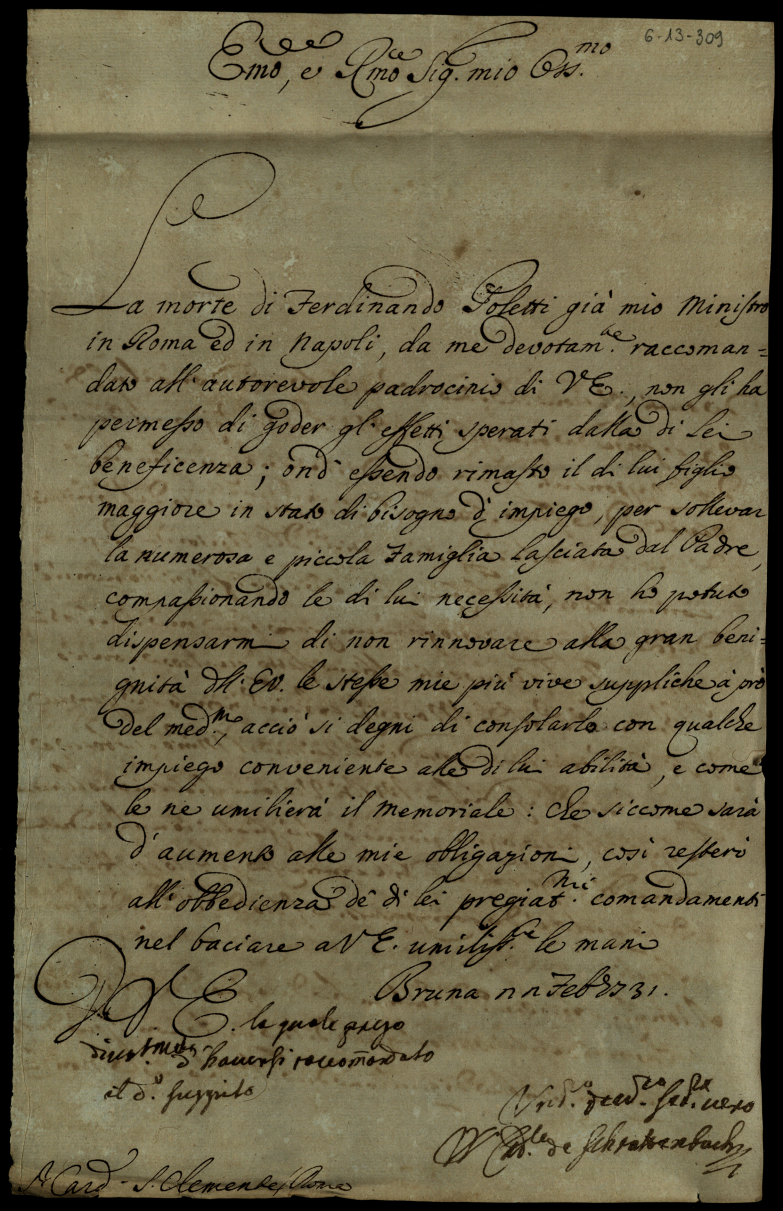 6-13-309
Emo, e Rmo Sig. mio Oss.mo
La morte di Ferdinando Poletti già mio Ministro
in Roma ed in Napoli, da me devotam.te raccoman=
dato all' autorevole padrocinio di V E., non gli ha
permesso di goder gl' effetti sperati dalla di Lei
beneficenza; ond' essendo rimasto il di lui figlio
maggiore in stato di bisogno d' impiego, per sollevar
la numerosa e piccola Famiglia lasciata dal Padre,
compassionando le di lui necessità, non ho potuto
dispensarmi di non rinnovare alla gran beni=
gnità dell' E V. le stesse mie più vive suppliche à prò
del med.mo, acciò si degni di consolarlo con qualche
impiego conveniente alle di lui abilità, e come
le ne umilierà il memoriale: che siccome sarà
d' aumento alle mie obligazioni, così resterò
all' obbedienza de' di lei pregiat.mi comandamenti
nel baciare a V E. umiliss.te le mani
Bruna Feb. 1731.
V E. la quale prego
d' haversi raccomandato
il d.o
vero
W Card.le de Schrattenbach
Card. S. Clemente Roma